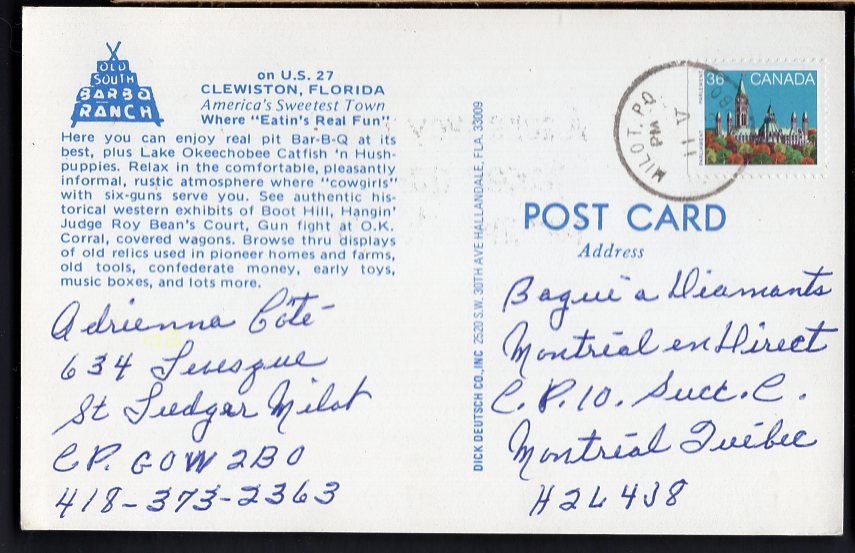 OLD
SOUTH
BAR B Q
RANCH
on U.S. 27
CLEWISTON, FLORIDA
America's Sweetest Town
Where "Eatin's Real Fun"
Here you can enjoy real pit Bar-B-Q at its
best, plus Lake Okeechobee Catfish 'n Hush-
puppies. Relax in the comfortable, pleasantly
informal, rustic atmosphere where "cowgirls"
with six-guns serve you. See authentic his-
torical western exhibits of Boot Hill, Hangin'
Judge Roy Bean's Court, Gun fight at O.K.
Corral, covered wagons. Browse thru displays
of old relics used in pioneer homes and farms,
old tools, confederate money, early toys,
music boxes, and lots more.
Adrienna Côté
634 Levesque
St Ludger Milot
CP. GOW 2BO
418-373-2363
DICK DEUTSCH CO., INC 2520 S.W. 30TH AVE HALLANDALE, FLA. 33009
36 CANADA
MILOT, PQ
PM
11 V
POST CARD
Address
Bague a Diamants
Montréal en Direct
C.P. 10. Succ. C.
Montréal Québec
H2L 4J8